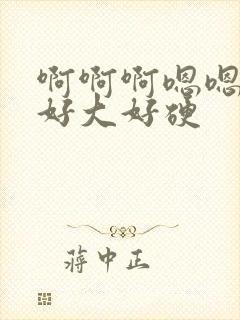 啊啊啊嗯嗯
好大好硬
蒋中正